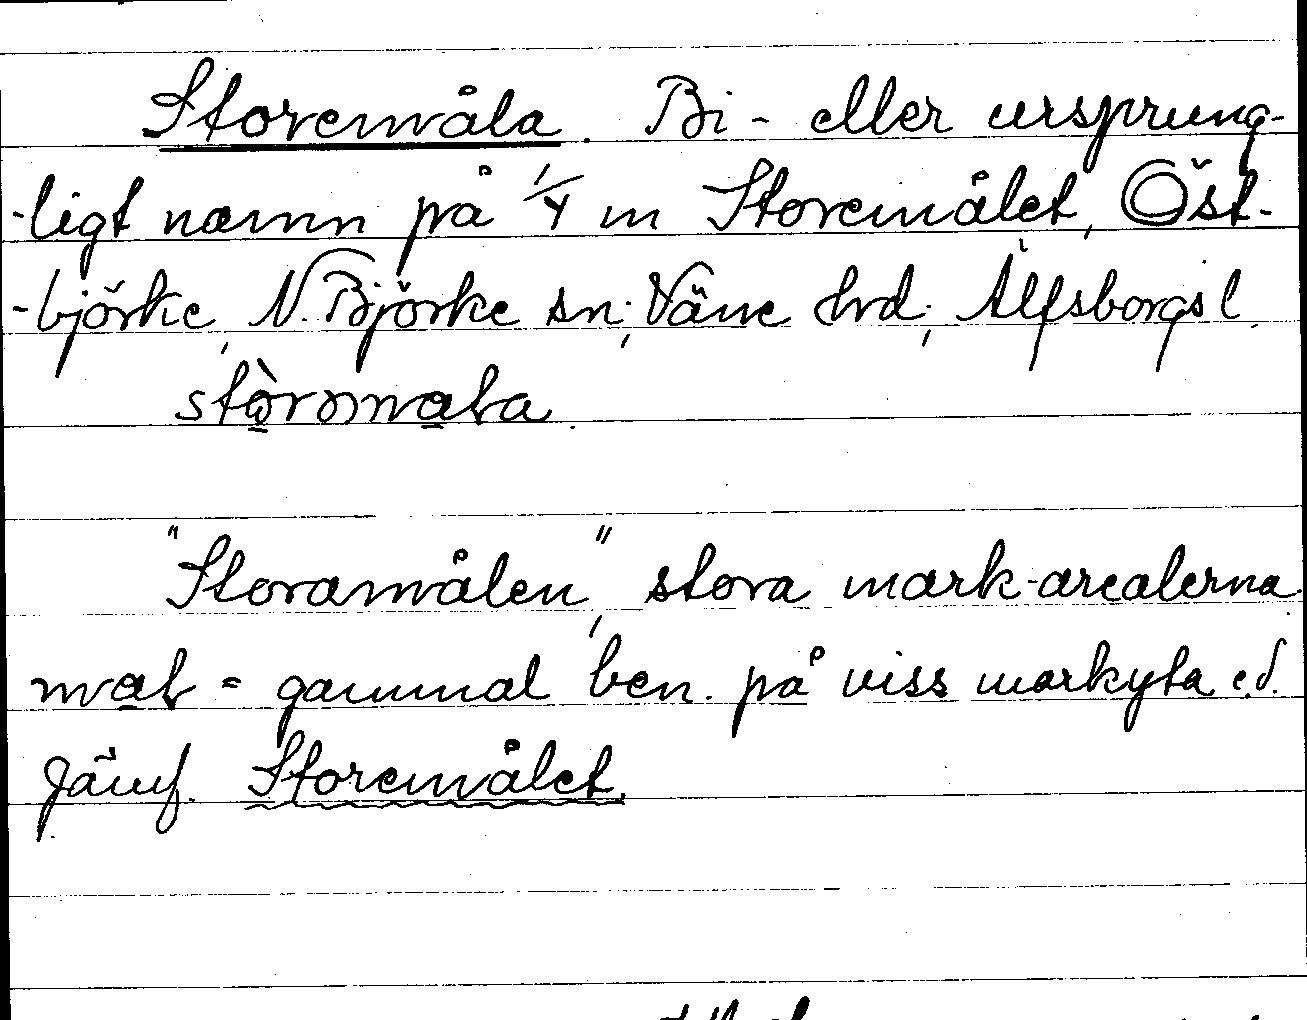 Storemåla. Bi- eller ursprung-
-ligt namn på 1/4 m Storemålet, Öst-
-björke, N. Björke sn; Väne hrd; Älfsborgs l.

"Storamålen", stora mark-arealerna.
= gammal ben. på viss markyta e.d.
Jämf. Storemålet.